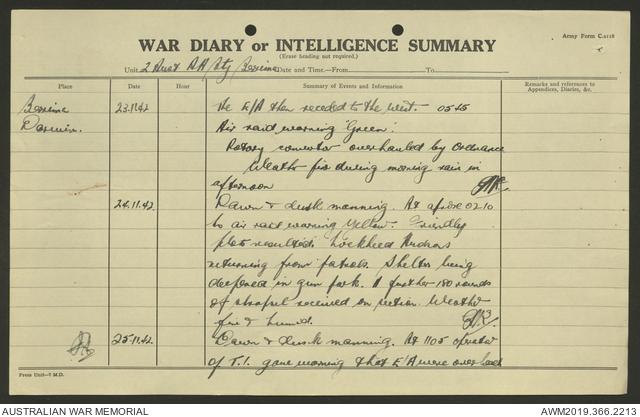 Army Form C.2118
WAR DIARY or INTELLIGENCE SUMMARY
(Erase heading not required.)
Unit 2 Aust AA Bty Berrima Date and Time.—From To
Place Date Hour Summary of Events and Information Remarks and references to Appendices, Diaries, &c.
Berrima 23.11.42 The E/A then receded to the West. 0525
Darwin. Air raid warning "Green".
Rotary convertor overhauled by Ordnance
Weather fine during morning rain in
afternoon
24.11.42 Dawn & dusk manning. At 0210
to air raid warning Yellow. Friendly
plot resulted. Lockheed Hudsons
returning from patrols. Shelter being
deepened in gun park. A further 180 rounds
of shrapnel received on section. Weather
fine & humid.
25.11.42 Dawn & dusk manning. At 1105 operator
of T.I. gave warning that E/A were overhead
Press Unit—7 M.D.
AUSTRALIAN WAR MEMORIAL
AWM2019.366.2213